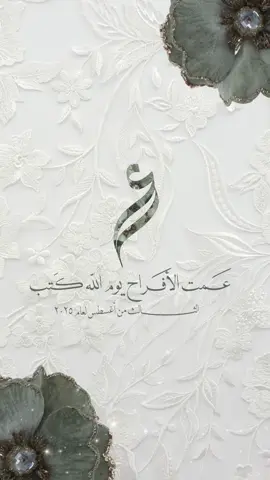 عَمت الأَفراح يوم الله كَتب
الثالث من أغسطس لعام ٢٠٢٥